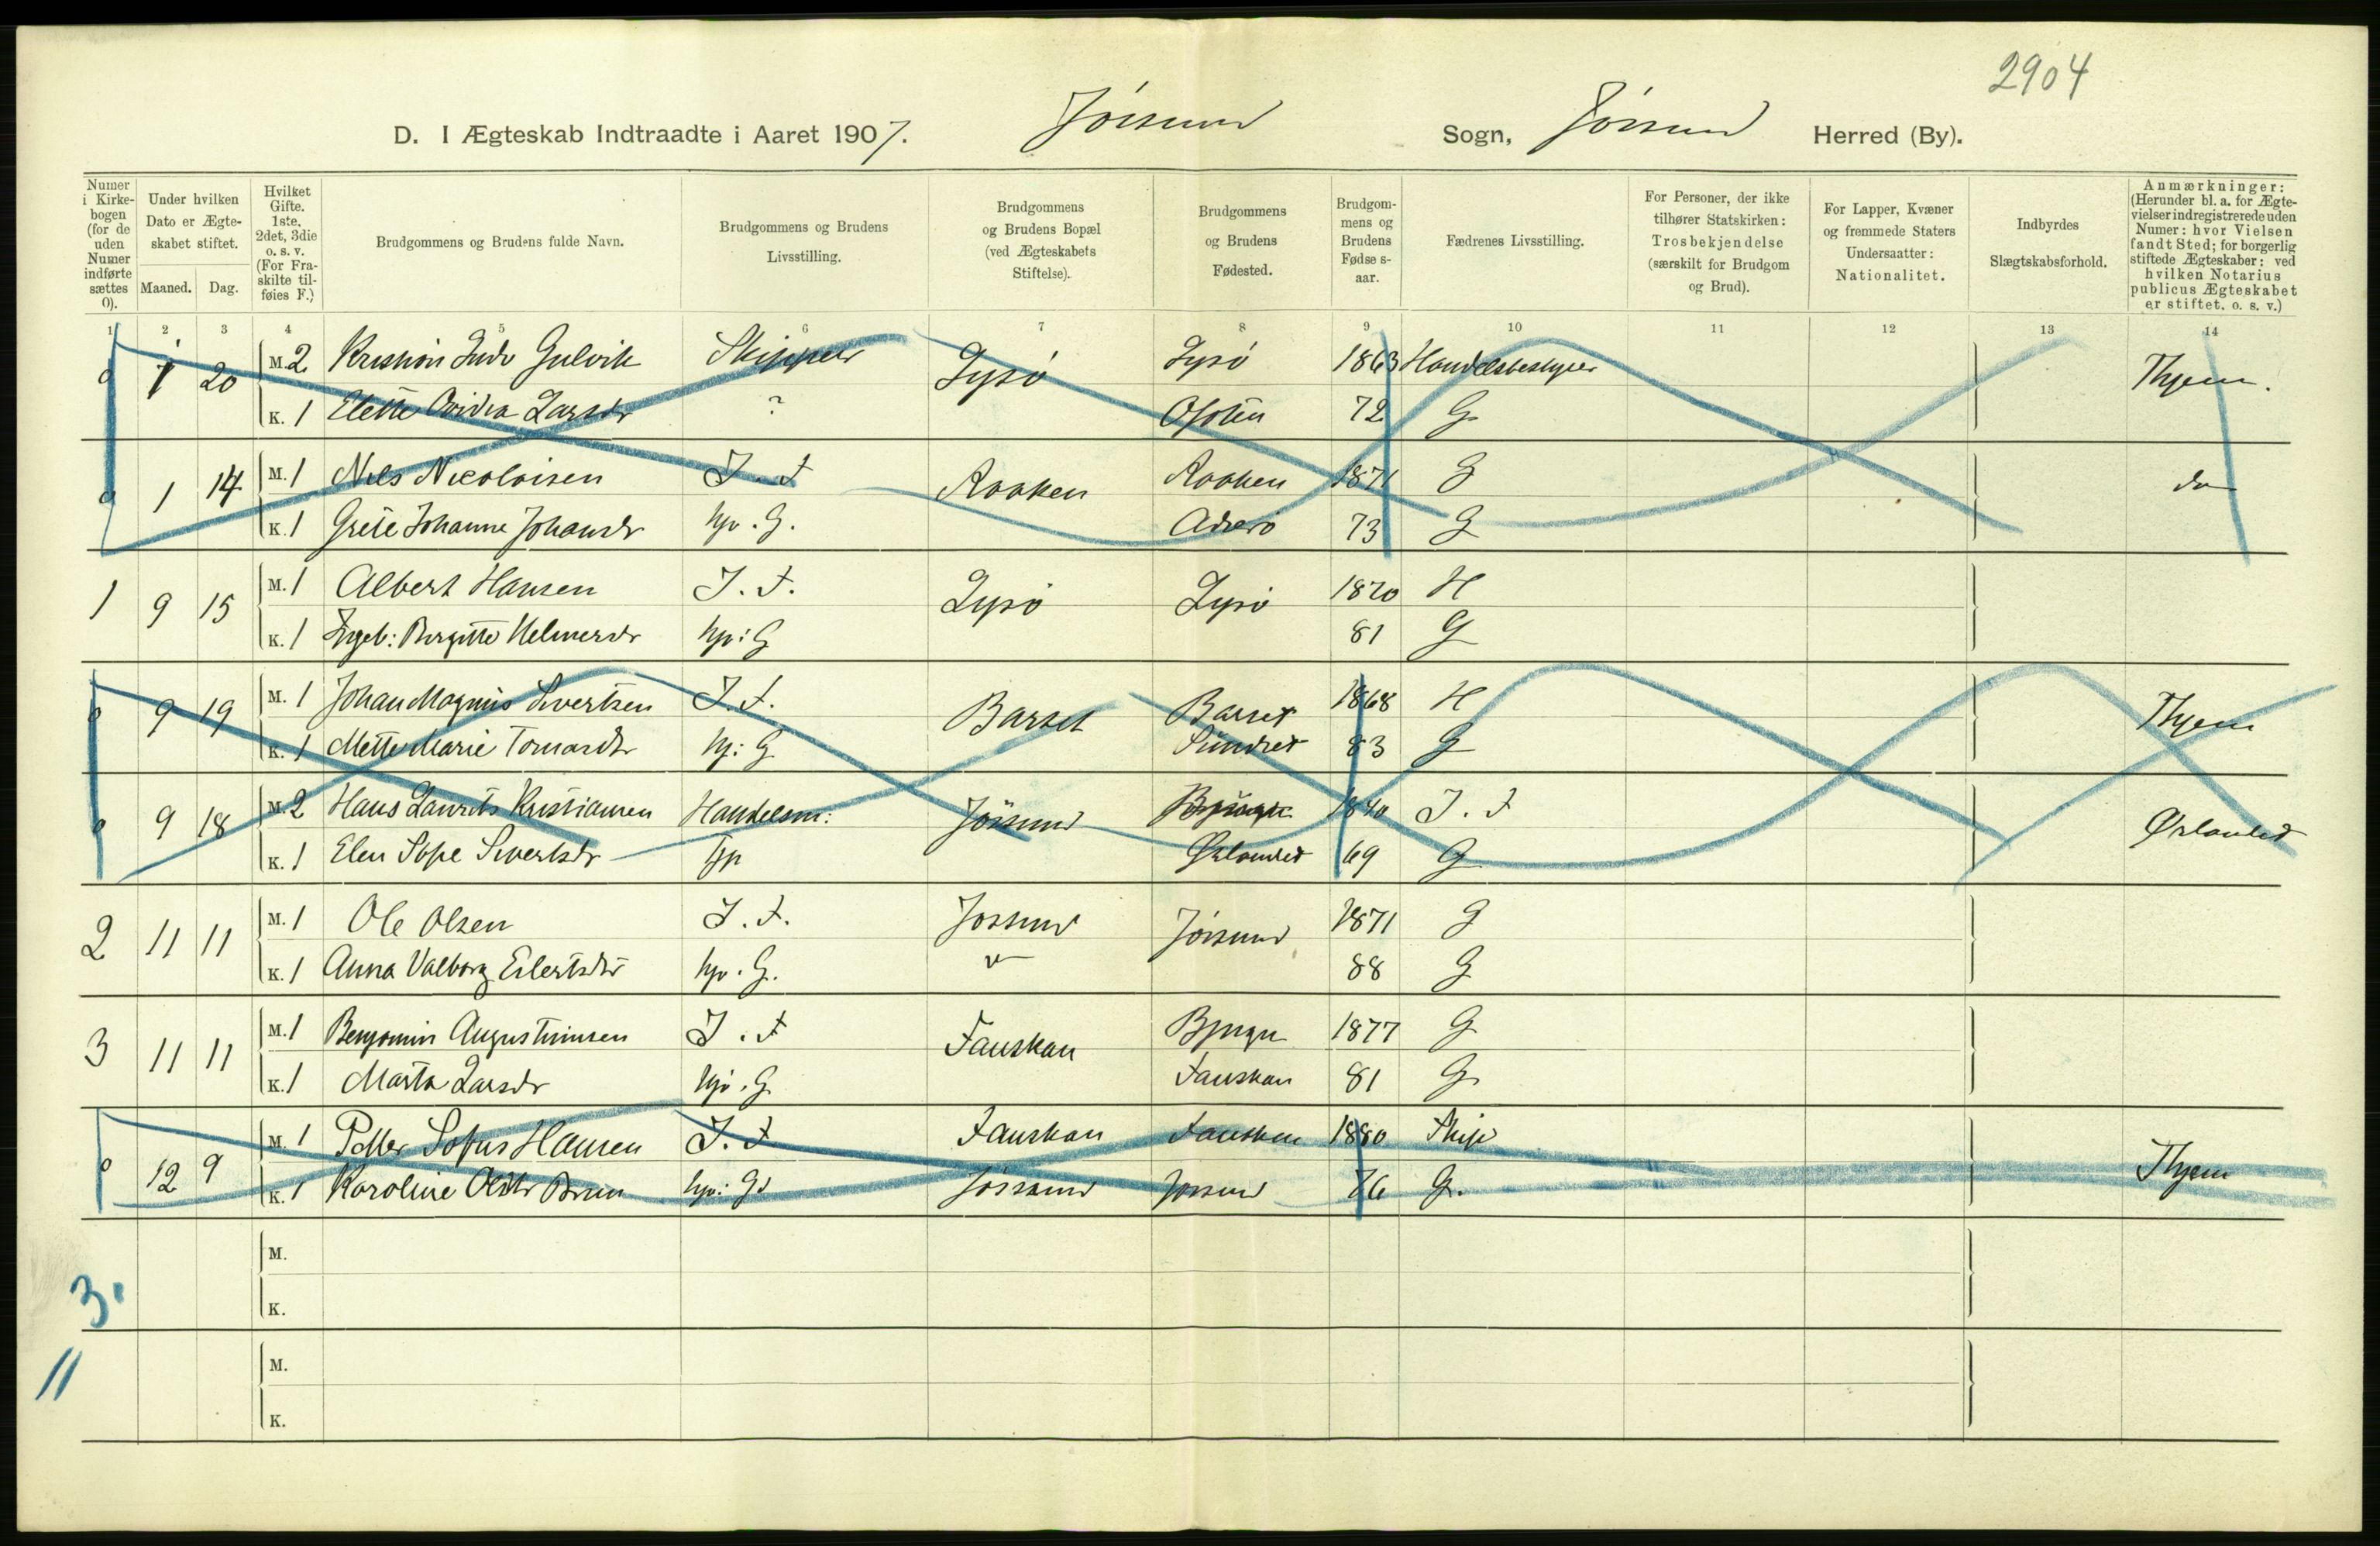 2904
D. I Ægteskab Indtraadte i Aaret 1907. Jössund Sogn, Jössund Herred (By).
Numer i Kirke-bogen (for de uden Numer indførte sættes 0).
Under hvilken Dato er Ægte-skabet stiftet.
Maaned. Dag.
Hvilket Gifte. 1ste, 2det, 3die o. s. v. (For Fra-skilte til-føies F.)
Brudgommens og Brudens fulde Navn.
Brudgommens og Brudens Livsstilling.
Brudgommens og Brudens Bopæl (ved Ægteskabets Stiftelse).
Brudgommens og Brudens Fødested.
Brudgom-mens og Brudens Fødse s-aar.
Fædrenes Livsstilling.
For Personer, der ikke tilhører Statskirken: Trosbekjendelse (særskilt for Brudgom og Brud).
For Lapper, Kvæner og fremmede Staters Undersaatter: Nationalitet.
Indbyrdes Slægtskabsforhold.
Anmærkninger: (Herunder bl. a. for Ægte-vielser indregistrerede uden Numer: hvor Vielsen fandt Sted; for borgerlig stiftede Ægteskaber: ved hvilken Notarius publicus Ægteskabet er stiftet, o. s. v.)
1 2 3 4 5 6 7 8 9 10 11 12 13 14
0 1 20 M. 2 Kristian Gulvik Skipper Lysö Lysö 1863 Handelsbestyrer Thjem.
K. 1 Elette Larsdr ? 72 G
0 1 14 M. 1 Nils Nicolaisen J. F Raaken Raaken 1871 G do
K. 1 Grete Johanne Johansdr hjv. G. 73 G
1 9 15 M. 1 Albert Hansen J. F. Lysö Lysö 1870 H
K. 1 Ingeb: Birgitte Helmersdr hjv: G 81 G
0 9 19 M. 1 Johan Magnus Sivertsen J. F. Barset Barset 1868 H Thjem
K. 1 Mette Marie Tomasdtr hj: G 83 G
0 9 18 M. 2 Hans Laurits Kristiansen Handelsm: Jössund 1840 J. F Ørlandet
K. 1 Elen Sofie Sivertsdr hjv Ørlandet 69 G
2 11 11 M. 1 Ole Olsen J. F. Jossund Jössund 1871 G
K. 1 Anna Valborg Eilertsdtr hjv. G. " 88 G
3 11 11 M. 1 Benjamin Augustinusen J. F Fauskan Bjugn 1877 G
K. 1 Marta Larsdr hjv. G Fauskan 81 G
0 12 9 M. 1 Petter Sofus Hansen J. F Fauskan Fauskan 1880 Skip Thjem
K. 1 Karoline Oldtr Brun hjv: G Jössund Jossund 86 G.
M.
3. K.
M.
11
K.